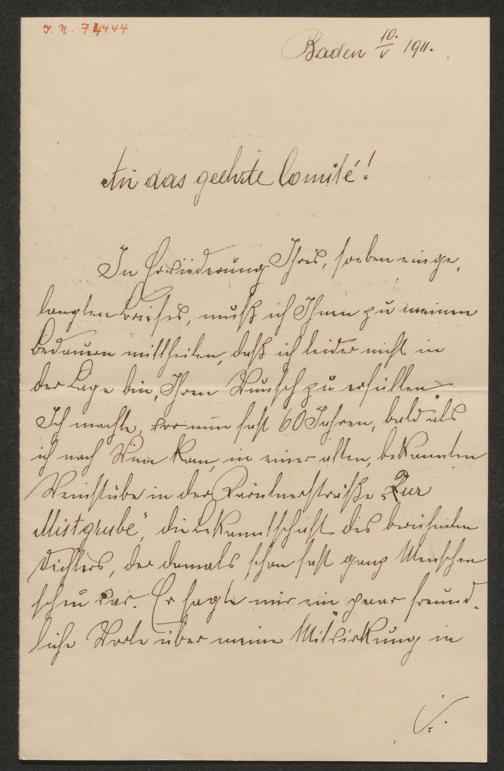 J. N. 74444
Baden 10./V 1911.
An das geehrte Comité!
In Erwiederung Ihres, soeben einge-
langten Briefes, muß ich Ihnen zu meinem
Bedauern mittheilen, daß ich leider nicht in
der Lage bin, Ihren Wunsch zu erfüllen.
Ich machte, vor nun fast 60 Jahren, bald als
ich nach Wien kam, in einer alten, bekannten
Weinstube in der Kärntnerstraße „Zur
Mistgrube", die Bekanntschaft des berühmten
Dichters, der damals schon fast ganz Menschen
scheu war. Er sagte mir ein paar freund-
liche Worte über meine Mitwirkung in